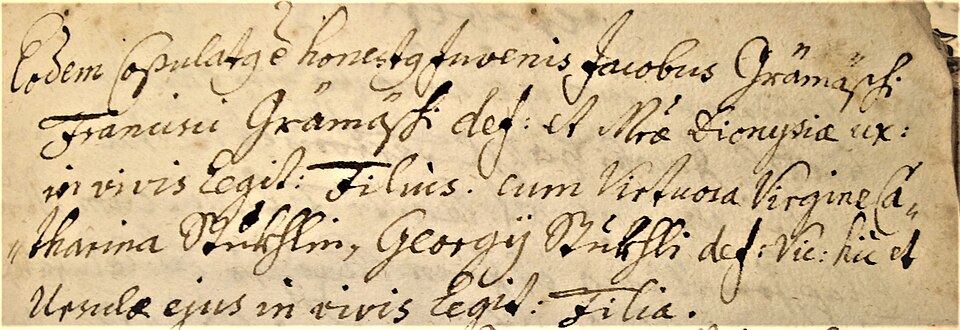 Eodem Copulatg ē honestg Juvenis Jacobus Grämäschi
Francisci Grämäschi def: et Mræ Dionysiæ ux:
in vivis Legit: Filius. cum Virtuosa Virgine Ca„
„tharina Stükhlin, Georgÿ Stükhli def: Vic: hic et
Ursulæ ejus in vivis Legit: Filia.